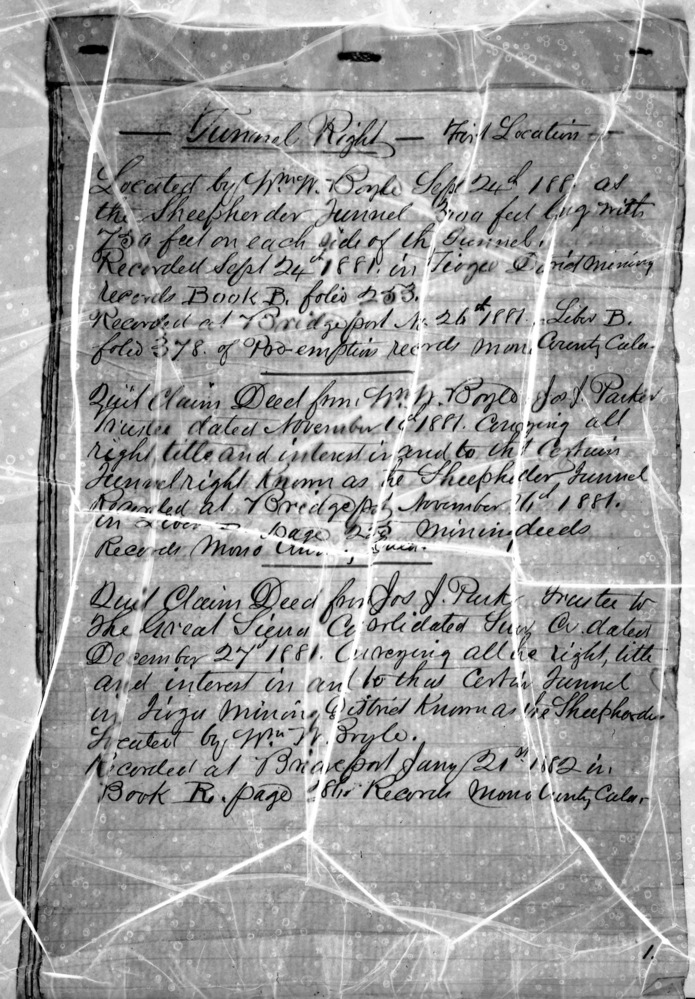 — Tunnel Right — First Location —
Located by Wm W. Boyle Sept 24th 188 as
the Sheepherder Tunnel 3000 feet long with
750 feet on each side of the Tunnel.
Recorded Sept 24th 1881. in Tioga District Mining
records Book B. folio 253.
Recorded at Bridgeport 26th 1881. Liber B.
folio 378. of Pre-emption records Mono County Cala.
Quit Claim Deed from Wm W. Boyle Jos. J. Parker
Trustee dated November 1881. Conveying all
right, title and interest in and to that Certain
Tunnel right Known as the Sheepherder Tunnel
Recorded at Bridgeport November 1881.
in Liber page Mining deeds
Records Mono
Quit Claim Deed from Jos J. Park Trustee to
The Great Sierra Consolidated Co. dated
December 27th 1881. Conveying all the right, title
and interest in and to that Certain Tunnel
in Tioga Mining District Known as the Sheepherder
Located by Wm W. Boyle.
Recorded at Bridgeport Jany 21st 1882 in
Book R. page Records Mono County Cala.
1.